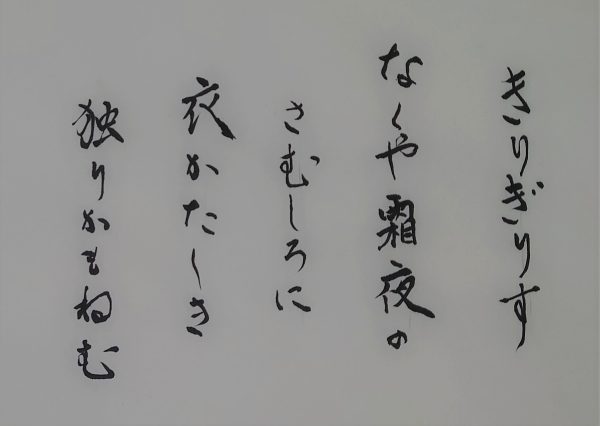 きりぎりす
なくや霜夜の
さむしろに
衣かたしき
独りかもねむ